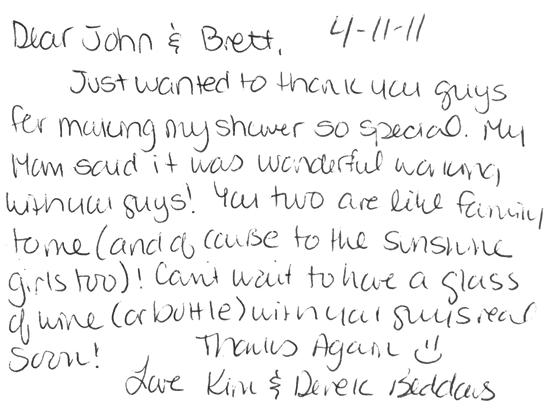 Dear John & Brett, 4-11-11
Just wanted to thank you guys
for making my shower so special. My
Mom said it was wonderful working
with you guys! You two are like family
to me (and of course to the sunshine
girls too)! Can't wait to have a glass
of wine (or bottle) with you guys real
soon! Thanks Again :)
Love Kim & Derek Beddaus